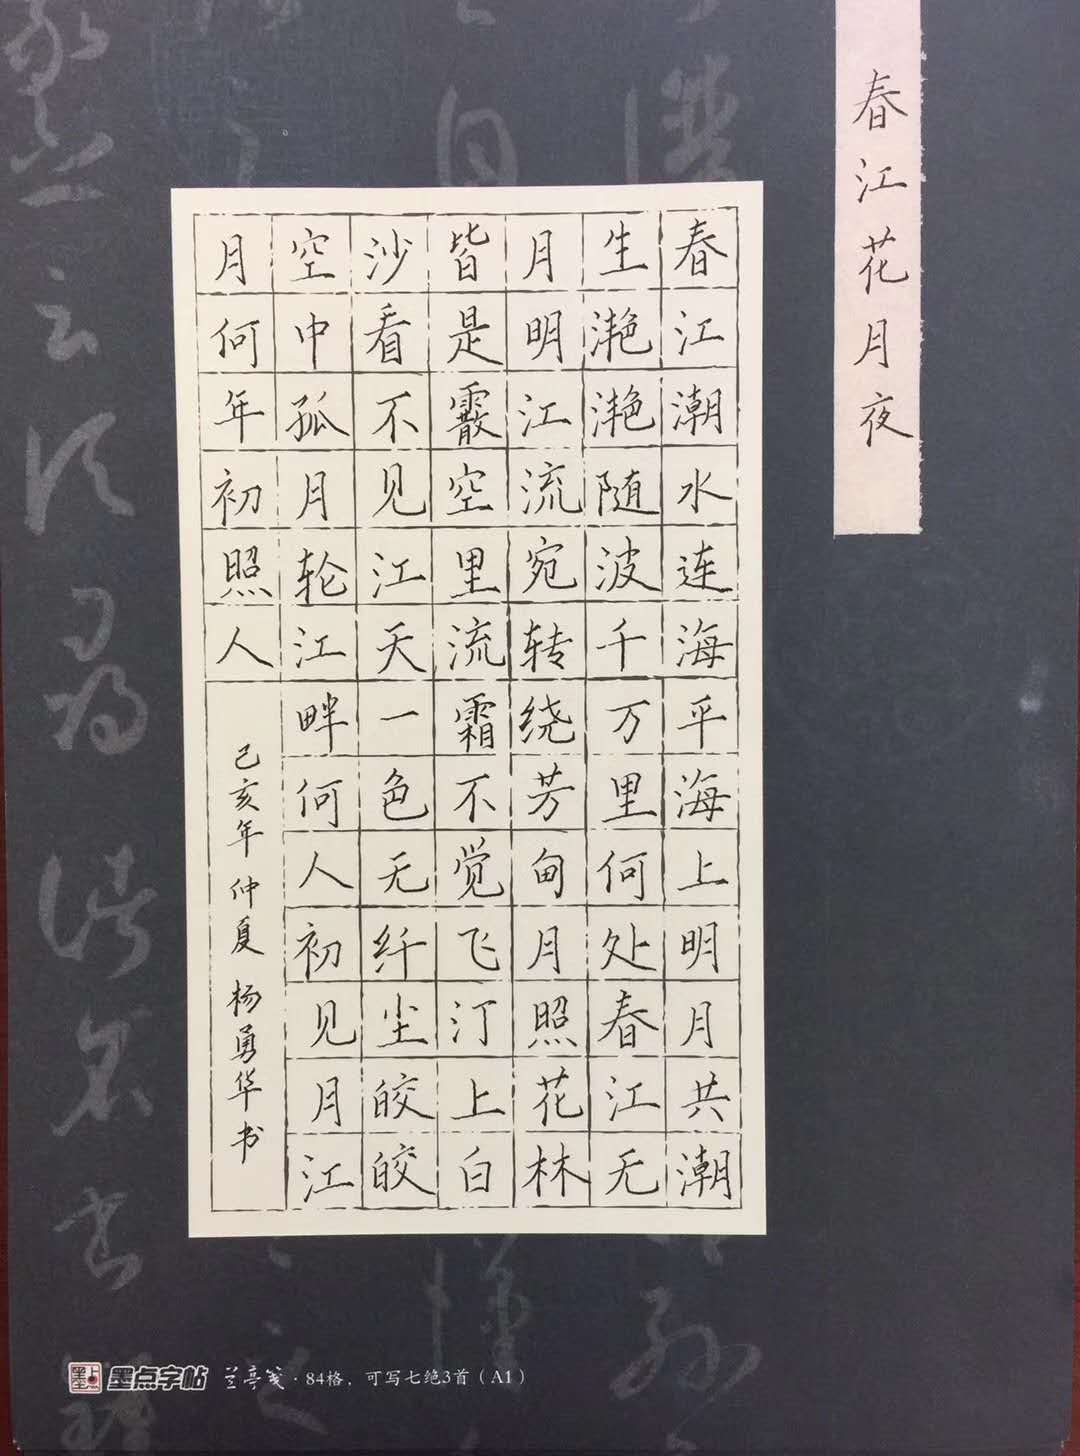 春江花月夜
春江潮水连海平海上明月共潮
生滟滟随波千万里何处春江无
月明江流宛转绕芳甸月照花林
皆是霰空里流霜不觉飞汀上白
沙看不见江天一色无纤尘皎皎
空中孤月轮江畔何人初见月江
月何年初照人
己亥年仲夏 杨勇华书
墨点字帖 兰亭笺·84格，可写七绝3首（A1）